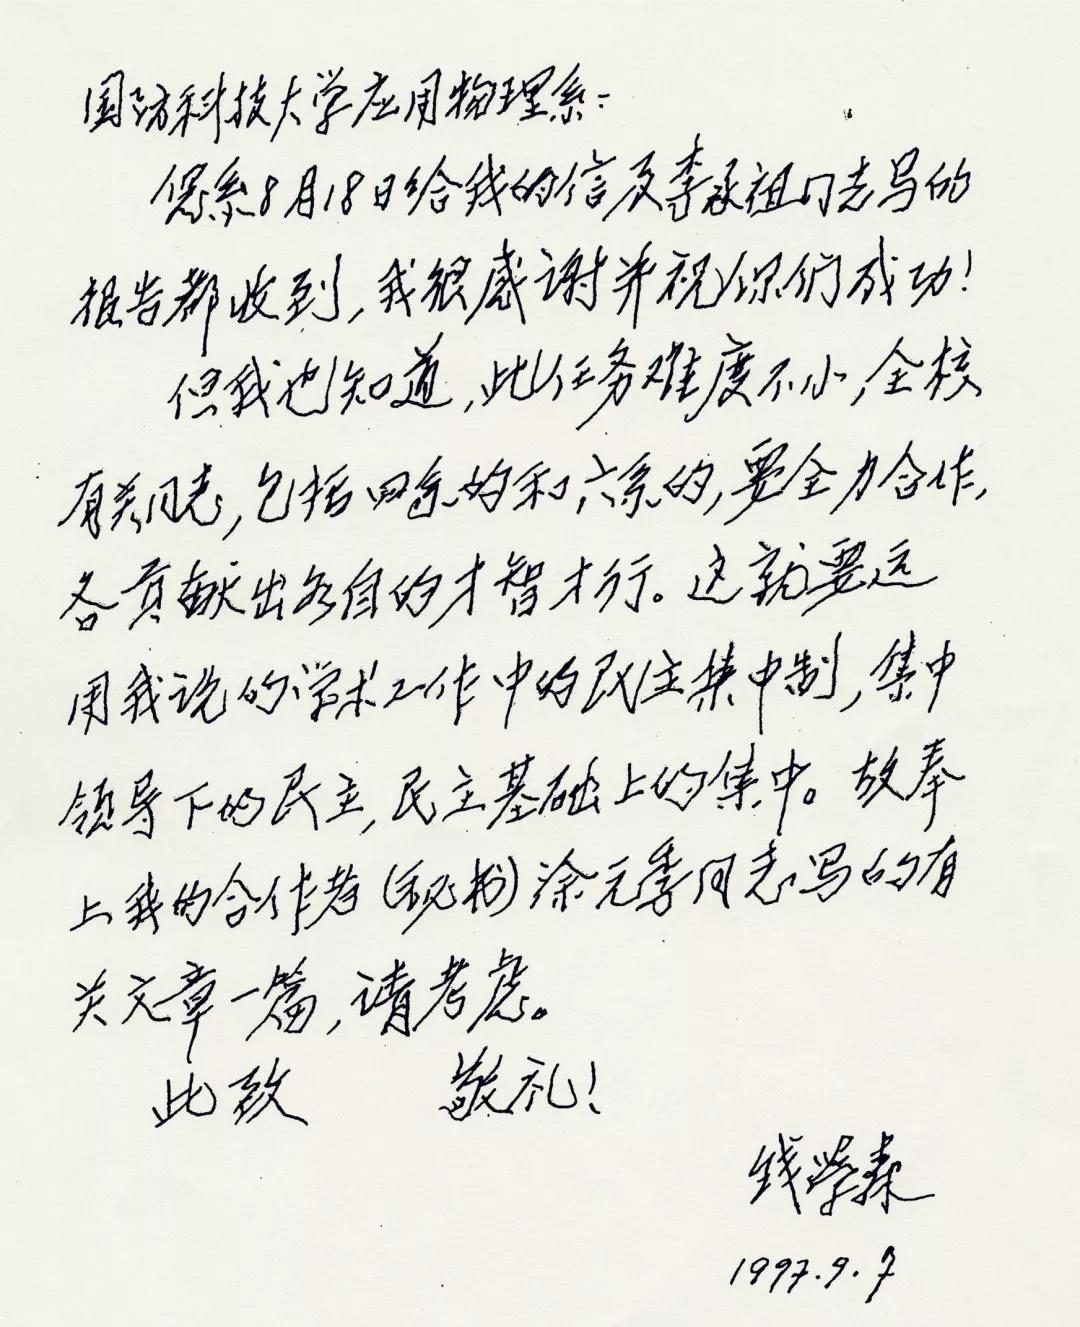 国防科技大学应用物理系：
您系8月18日给我的信及李承祖同志写的
报告都收到，我很感谢并视你们成功！
但我也知道，此任务难度不小，全校
有关同志，包括四系的和六系的，要全力合作，
各贡献出各自的才智才行。这就要运
用我说的学术工作中的民主集中制，集中
领导下的民主，民主基础上的集中。故奉
上我的合作者（秘书）涂元季同志写的有
关文章一篇，请考虑。
此致 敬礼！
钱学森
1997.9.7